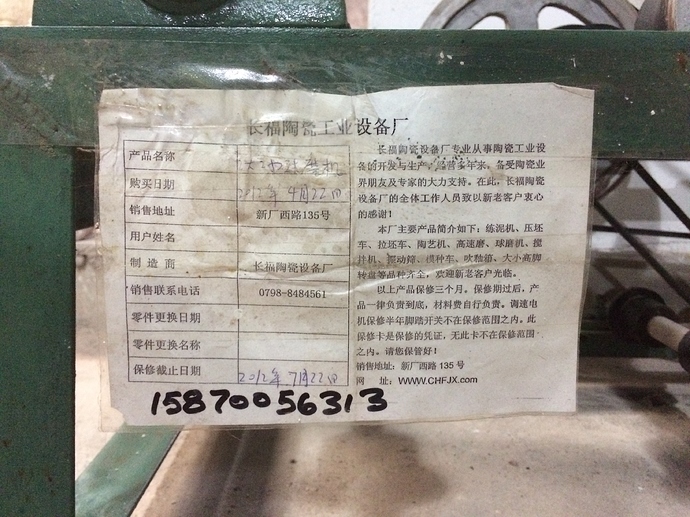 长福陶瓷工业设备厂
产品名称
购买日期 2012年4月22日
销售地址 新厂西路135号
用户姓名
制造商 长福陶瓷设备厂
销售联系电话 0798-8484561
零件更换日期
零件更换名称
保修截止日期 2012年7月22日
15870056313
长福陶瓷设备厂专业从事陶瓷工业设
备的开发与生产,经营多年来,备受陶瓷业
界朋友及专家的大力支持。在此,长福陶瓷
设备厂的全体工作人员致以新老客户衷心
的感谢!
本厂主要产品简介如下:练泥机、压坯
车、拉坯车、陶艺机、高速磨、球磨机、搅
拌机、振动筛、模种车、吹釉箱、大小高脚
转盘等品种齐全,欢迎新老客户光临。
以上产品保修三个月。保修期过后,产
品一律负责到底,材料费自行负责。调速电
机保修半年脚踏开关不在保修范围之内。此
保修卡是保修的凭证,无此卡不在保修范围
之内。请您保管好!
销售地址:新厂西路135号
网 址:WWW.CHFJX.COM